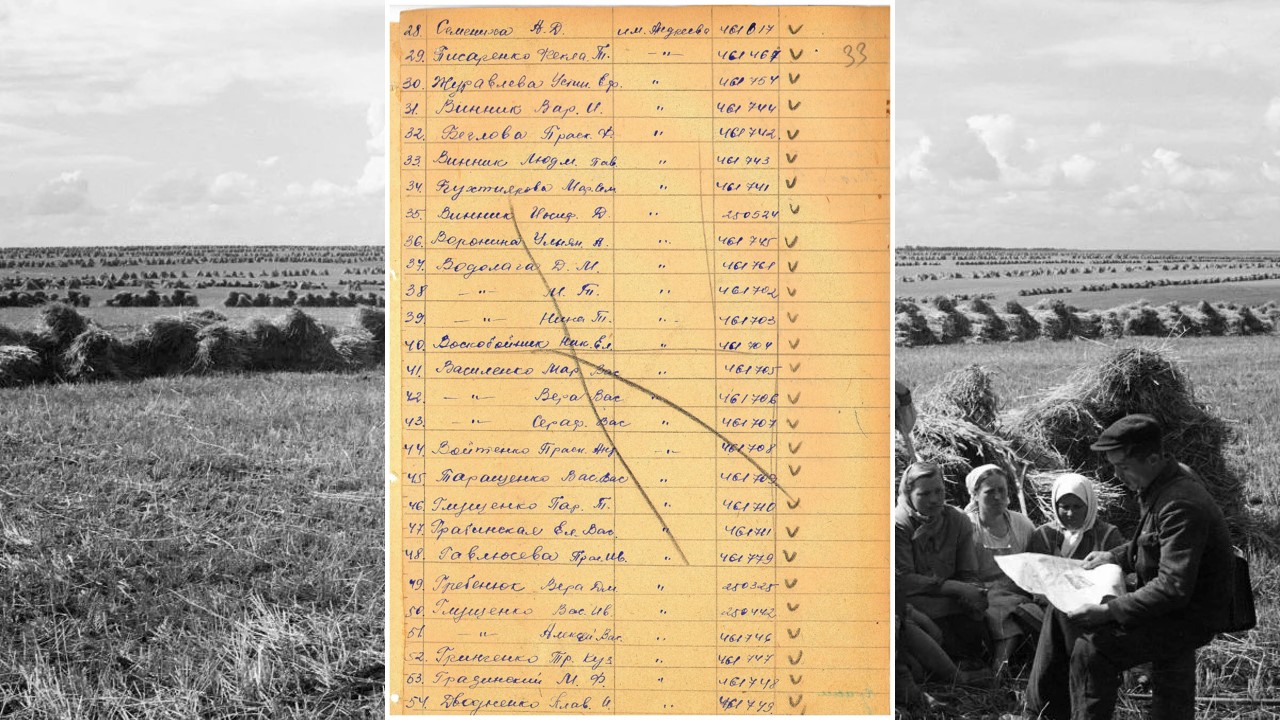 28. Семенцова А. Д. им. Андреева 461617 v
29. Писаренко Фекла Т. —"— 461467 v 33
30. Журавлева Устин. Еф. " 461754 v
31. Винник Вар. И. " 461744 v
32. Беглова Праск. Ф. " 461742 v
33. Винник Людм. Пав. " 461743 v
34. Бухтиярова Мар. " 461741 v
35. Винник Иосиф. Д. " 250524 v
36. Воронина Ульян. А. " 461745 v
37. Водолага Д. М. " 461761 v
38 —"— М. Т. " 461702 v
39. —"— Нина Т. " 461703 v
40. Воскобойник Ник. Ел. " 461704 v
41. Василенко Мар. Вас " 461705 v
42. —"— Вера Вас " 461706 v
43. —"— Сераф. Вас " 461707 v
44. Войтенко Праск. Анд —"— 461708 v
45 Таращенко Вас. Вас " 461709 v
46. Глущенко Пар. П. " 461710 v
47. Грабинская Ел. Вас. " 461711 v
48. Павлюсева Прас. Ив. " 461779 v
49. Гребенюк Вера Дм. " 250325 v
50. Глущенко Вас. Ив. " 250442 v
51 —"— Вас. " 461746 v
52. Гринченко Тр. Куз " 461747 v
53. Градинский М. Ф. " 461748 v
54. Двадненко Клав. И. " 461749 v